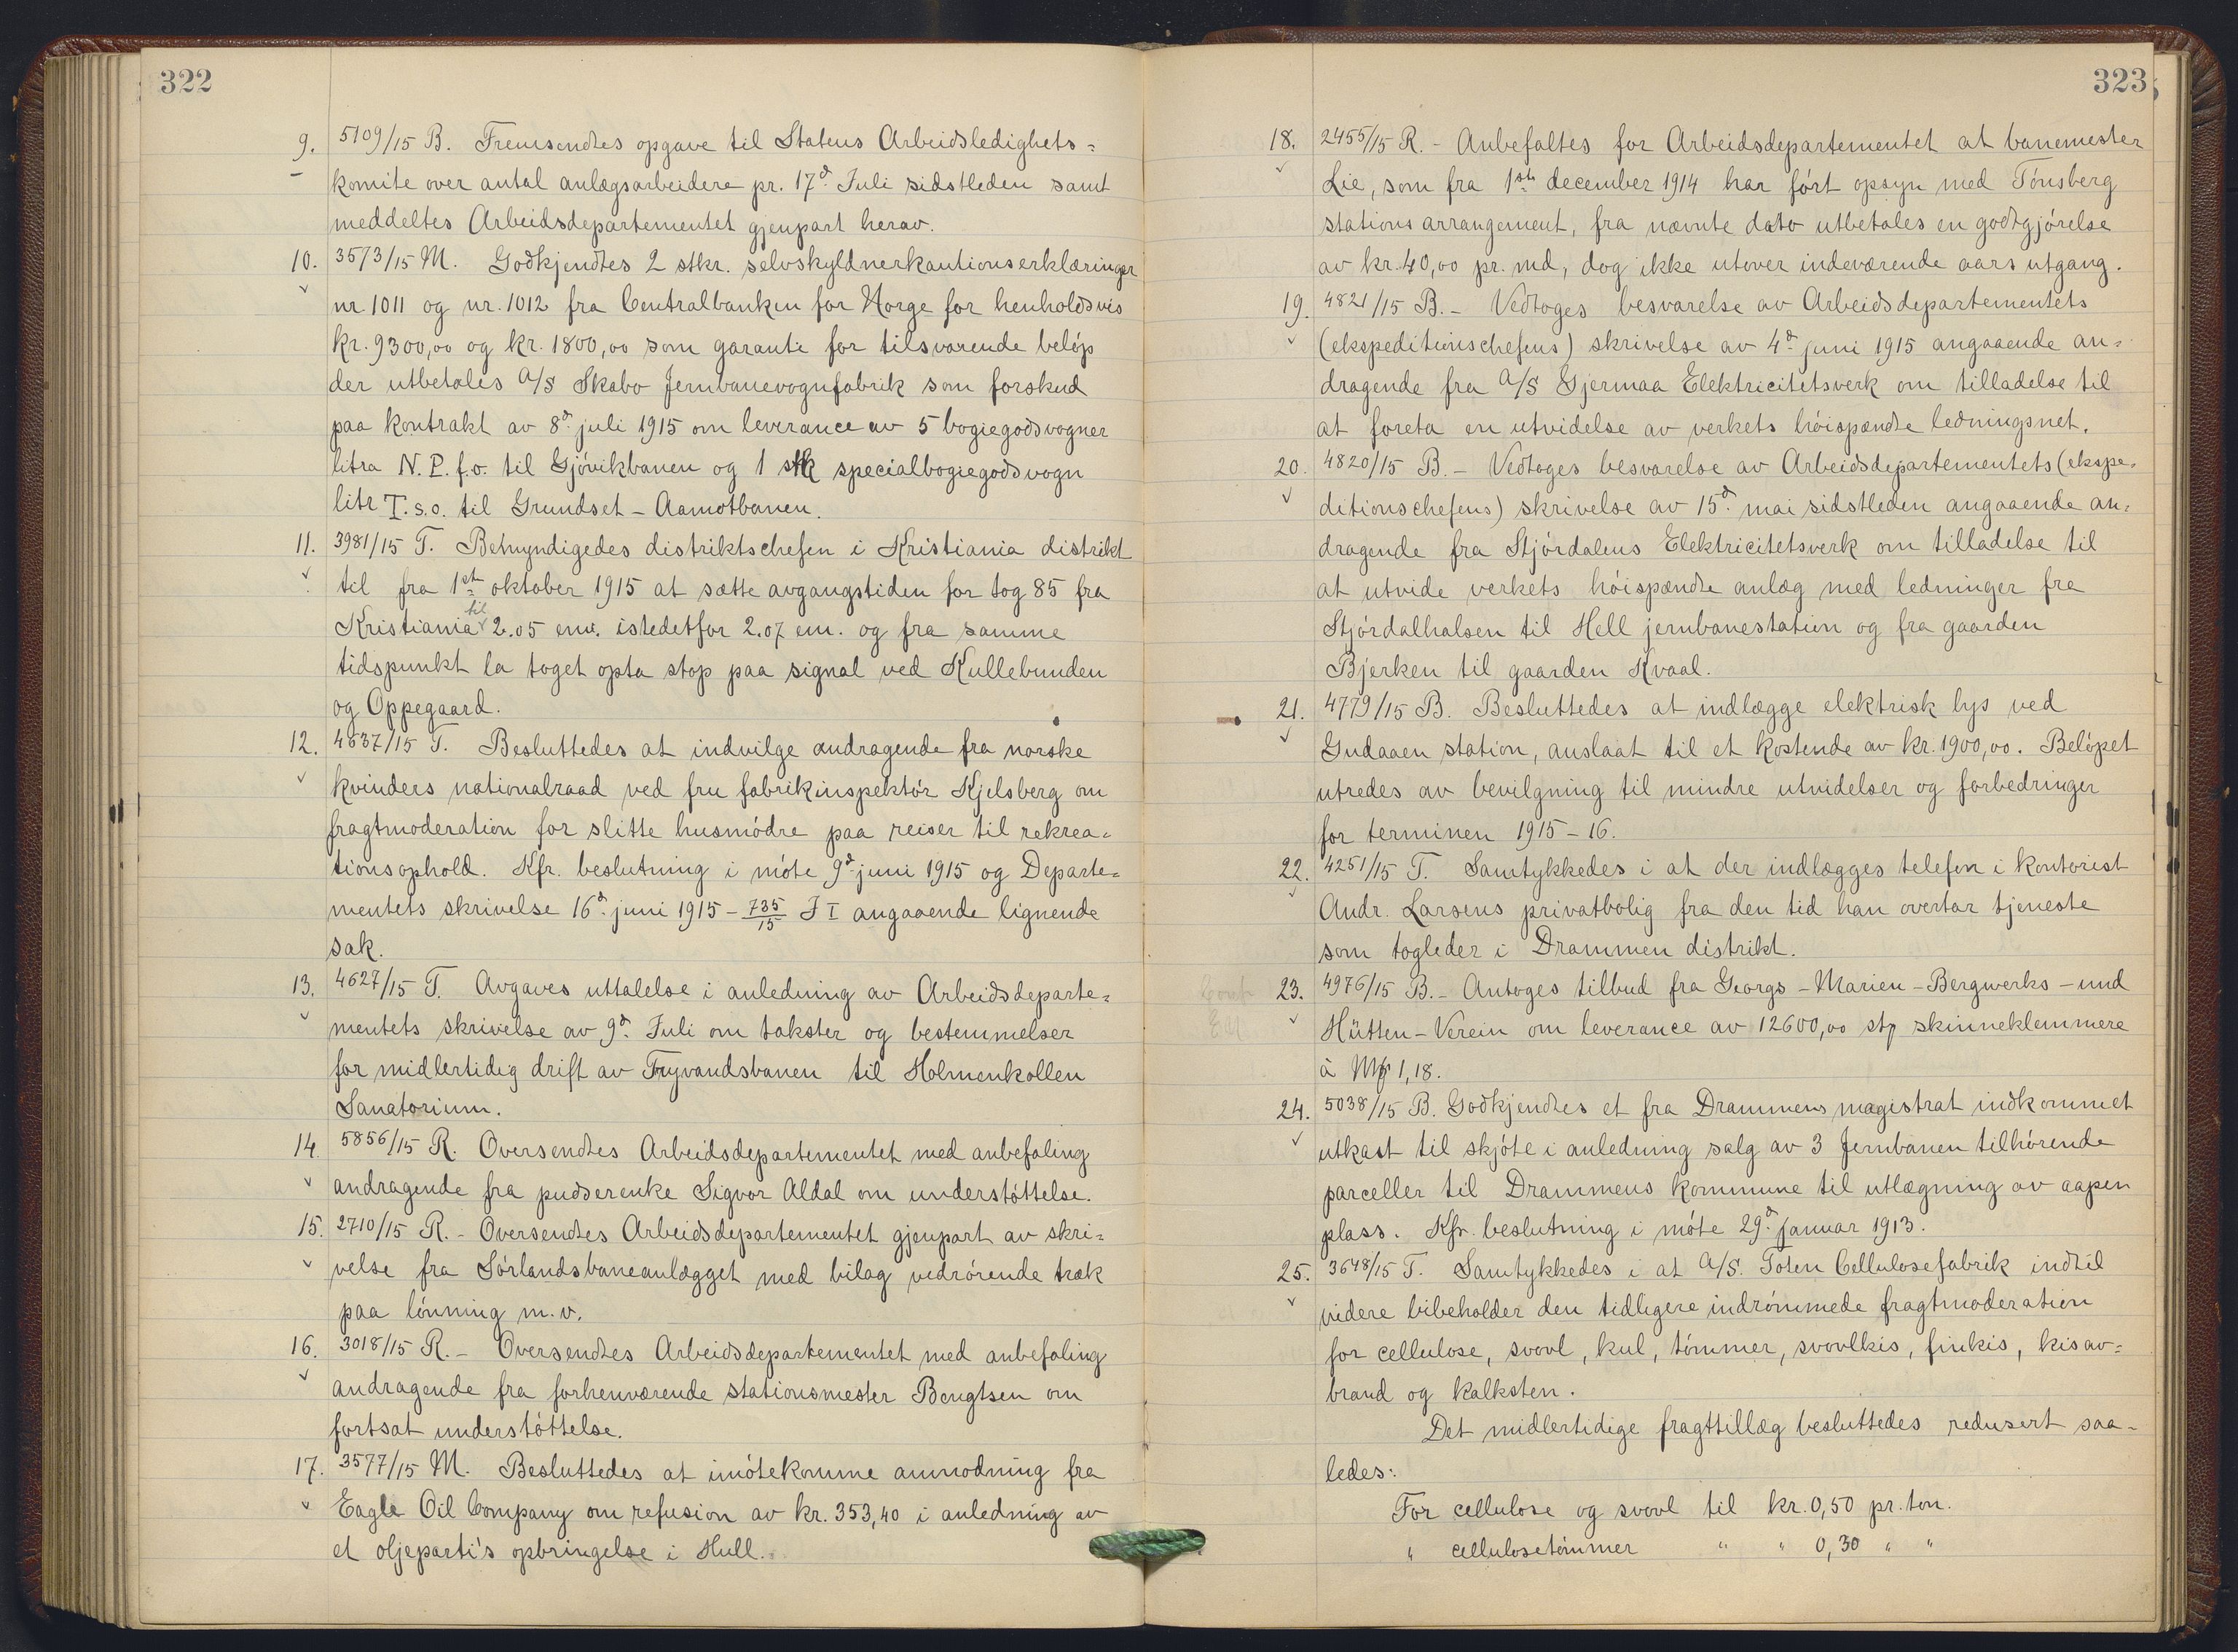 322
9. 5109/15 B. Fremsendtes opgave til Statens Arbeidsledighets=
komite over antal anlægsarbeidere pr. 17d. Juli sidstleden samt
meddeltes Arbeidsdepartementet gjenpart herav.
10. 3573/15 M. Godkjendtes 2 stkr. selvskyldnerkautionserklæringer
nr. 1011 og nr. 1012 fra Centralbanken for Norge for henholdsvis
kr. 9300,00 og kr. 1800,00 som garanti for tilsvarende beløp
der utbetales A/S Skabo Jernbanevognfabrik som forskud
paa kontrakt av 8d. juli 1915 om leverance av 5 bogiegodsvogner
litra N.P.f.o. til Gjøvikbanen og 1 stk specialbogiegodsvogn
litr T.s.o. til Grundset - Aamotbanen.
11. 3981/15 T. Bemyndigedes distriktschefen i Kristiania distrikt
til fra 1ste oktober 1915 at sætte avgangstiden for tog 85 fra
Kristiania til 2.05 em. istedetfor 2.07 em. og fra samme
tidspunkt la toget opta stop paa signal ved Kullebunden
og Oppegaard.
12. 4637/15 T. Besluttedes at indvilge andragende fra norske
kvinders nationalraad ved fru fabrikinspektør Kjelsberg om
fragtmoderation for slitte husmødre paa reiser til rekrea=
tionsophold. Kfr. beslutning i møte 9d juni 1915 og Departe=
mentets skrivelse 16d. juni 1915 - 735/15 J I angaaende lignende
sak.
13. 4627/15 T. Avgaves uttalelse i anledning av Arbeidsdeparte=
mentets skrivelse av 9d. Juli om takster og bestemmelser
for midlertidig drift av Tryvandsbanen til Holmenkollen
Sanatorium.
14. 5856/15 R. Oversendtes Arbeidsdepartementet med anbefaling
andragende fra pudserenke Sigvor Aldal om understøttelse.
15. 2710/15 R. - Oversendtes Arbeidsdepartementet gjenpart av skri=
velse fra Sørlandsbaneanlægget med bilag vedrørende træk
paa lønning m.v.
16. 3018/15 R. - Oversendtes Arbeidsdepartementet med anbefaling
andragende fra forhenværende stationsmester Bengtsen om
fortsat understøttelse.
17. 3577/15 M. Besluttedes at imøtekomme anmodning fra
Eagle Oil Company om refusion av kr. 353,40 i anledning av
et oljeparti's opbringelse i Hull.
323
18. 2455/15 R. - Anbefaltes for Arbeidsdepartementet at banemester
Lie, som fra 1ste december 1914 har ført opsyn med Tønsberg
stationsarrangement, fra nævnte dato utbetales en godtgjørelse
av kr. 40,00 pr. md, dog ikke utover indeværende aars utgang.
19. 4821/15 B. - Vedtoges besvarelse av Arbeidsdepartementets
(ekspeditionschefens) skrivelse av 4d juni 1915 angaaende an=
dragende fra A/S Gjermaa Elektricitetsverk om tilladelse til
at foreta en utvidelse av verkets høispændte ledningsnet.
20. 4820/15 B. - Vedtoges besvarelse av Arbeidsdepartementets (ekspe=
ditionschefens) skrivelse av 15d. mai sidstleden angaaende an=
dragende fra Stjørdalens Elektricitetsverk om tilladelse til
at utvide verkets høispændte anlæg med ledninger fra
Stjørdalhalsen til Hell jernbanestation og fra gaarden
Bjerken til gaarden Kvaal.
21. 4779/15 B. Besluttedes at indlægge elektrisk lys ved
Gudaaen station, anslaat til et kostende av kr. 1900,00. Beløpet
utredes av bevilgning til mindre utvidelser og forbedringer
for terminen 1915 - 16.
22. 4251/15 T. Samtykkedes i at der indlægges telefon i kontorist
Andr. Larsens privatbolig fra den tid han overtar tjeneste
som togleder i Drammen distrikt.
23. 4976/15 B. - Antoges tilbud fra Georgs - Marien - Bergwerks - und
Hütten - Verein om leverance av 12600,00 stk skinneklemmere
à Mk 1,18.
24. 5038/15 B. Godkjendtes et fra Drammens magistrat indkommet
utkast til skjøte i anledning salg av 3 Jernbanen tilhørende
parceller til Drammens kommune til utlægning av aapen
plass. Kfr. beslutning i møte 29d. januar 1913.
25. 3648/15 T. Samtykkedes i at A/S. Toten Cellulosefabrik indtil
videre bibeholder den tidligere indrømmede fragtmoderation
for cellulose, svovl, kul, tømmer, svovlkis, finkis, kisav=
brand og kalksten.
Det midlertidige fragttillæg besluttedes redusert saa=
ledes:
For cellulose og svovl til kr. 0,50 pr. ton.
" cellulosetømmer " " 0,30 " "